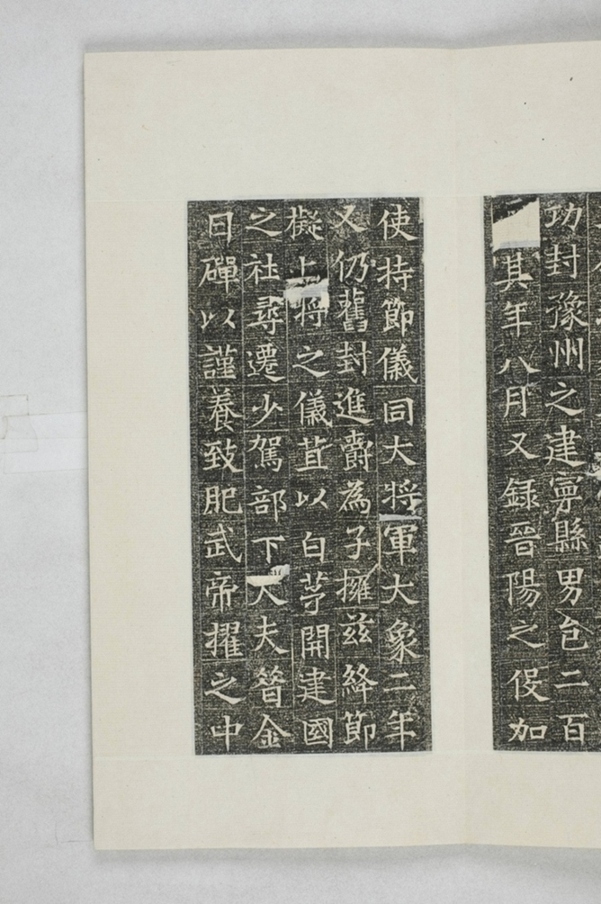 功封豫州之建寧縣男邑二百
其年八月又録晉陽之役加
使持節儀同大將軍大象二年
又仍舊封進爵為子擁茲絳節
擬上將之儀苴以白茅開建國
之社尋遷少駕部下大夫昔金
日磾以謹養致肥武帝擢之中